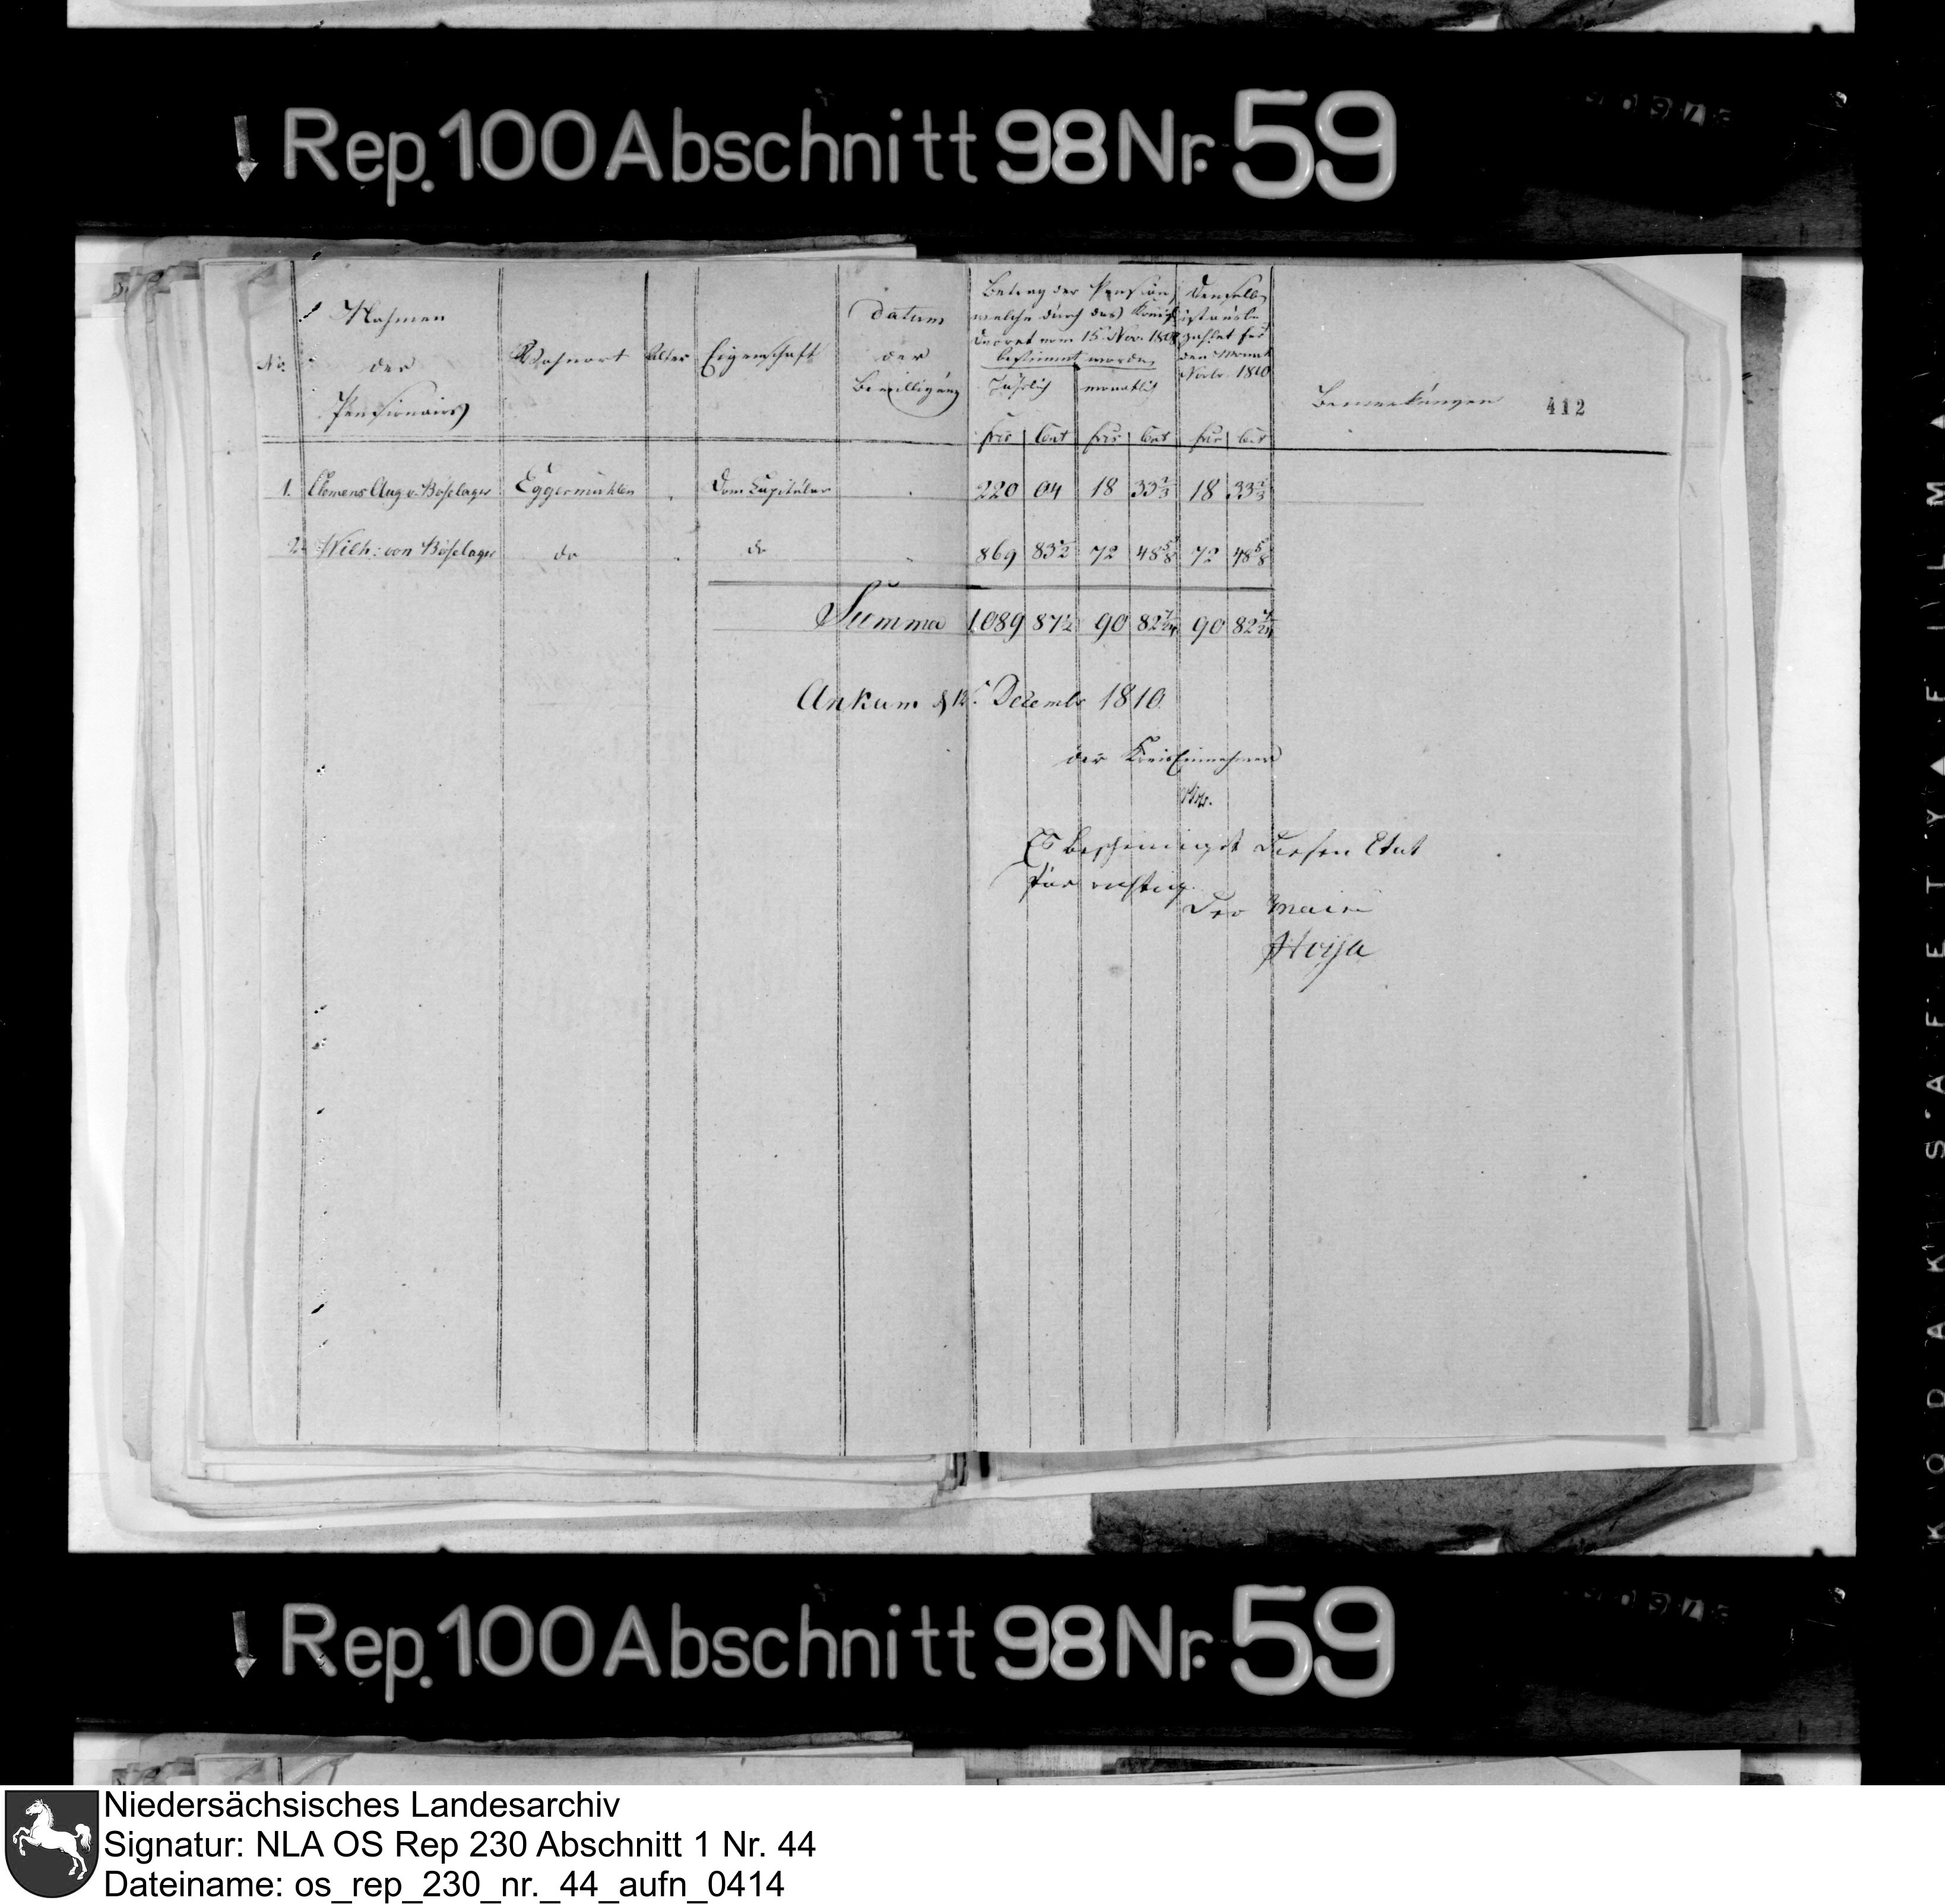 Rep. 100 Abschnitt 98 Nr. 59
No.
Nahmen
der
Pensionairs
Wohnort
Alter
Eigenschaft
Datum
der
Bewilligung
Betrag der Pension
welche durch das Königl
Decret vom 15 Nov. 1808
bestimmt worden
Jährlich monatlich
Denselb
ist ausbe
zahlet für
den Monat
Novbr. 1810
Bemerkungen
412
frcs Cent frcs Cent frc Cent
1. Clemens Aug v. Böselager Eggermühlen Dom Capitular 220 04 18 33 2/3 18 33 2/3
2. Wilh: von Böselager do do 869 83 1/2 72 48 5/8 72 48 5/8
Summa 1089 87 1/2 90 82 7/24 90 82 7/24
Ankum d 12 Decembr 1810.
der Kreis Einnehmer
Es bescheiniget diesen Etat
für richtig
Der Maire
Hoya
Rep. 100 Abschnitt 98 Nr. 59
KODAK SAFETY FILM
Niedersächsisches Landesarchiv
Signatur: NLA OS Rep 230 Abschnitt 1 Nr. 44
Dateiname: os_rep_230_nr._44_aufn_0414